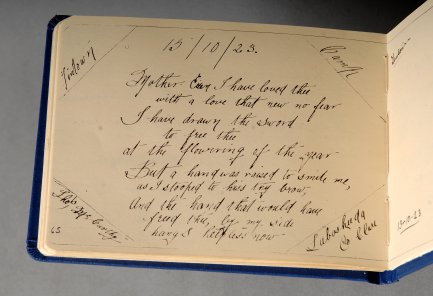 Tintown
15/10/23.
Camp
Mother Eire I have loved thee
with a love that new no fear
I have drawn the sword
to free thee
at the flowering of the year
But a hand was raised to smite me,
as I stooped to kiss thy brow,
And the hand that would have
freed thee, by my side
hangs helpless now
Thos
65
Labasheeda
Co Clare
13-10-23